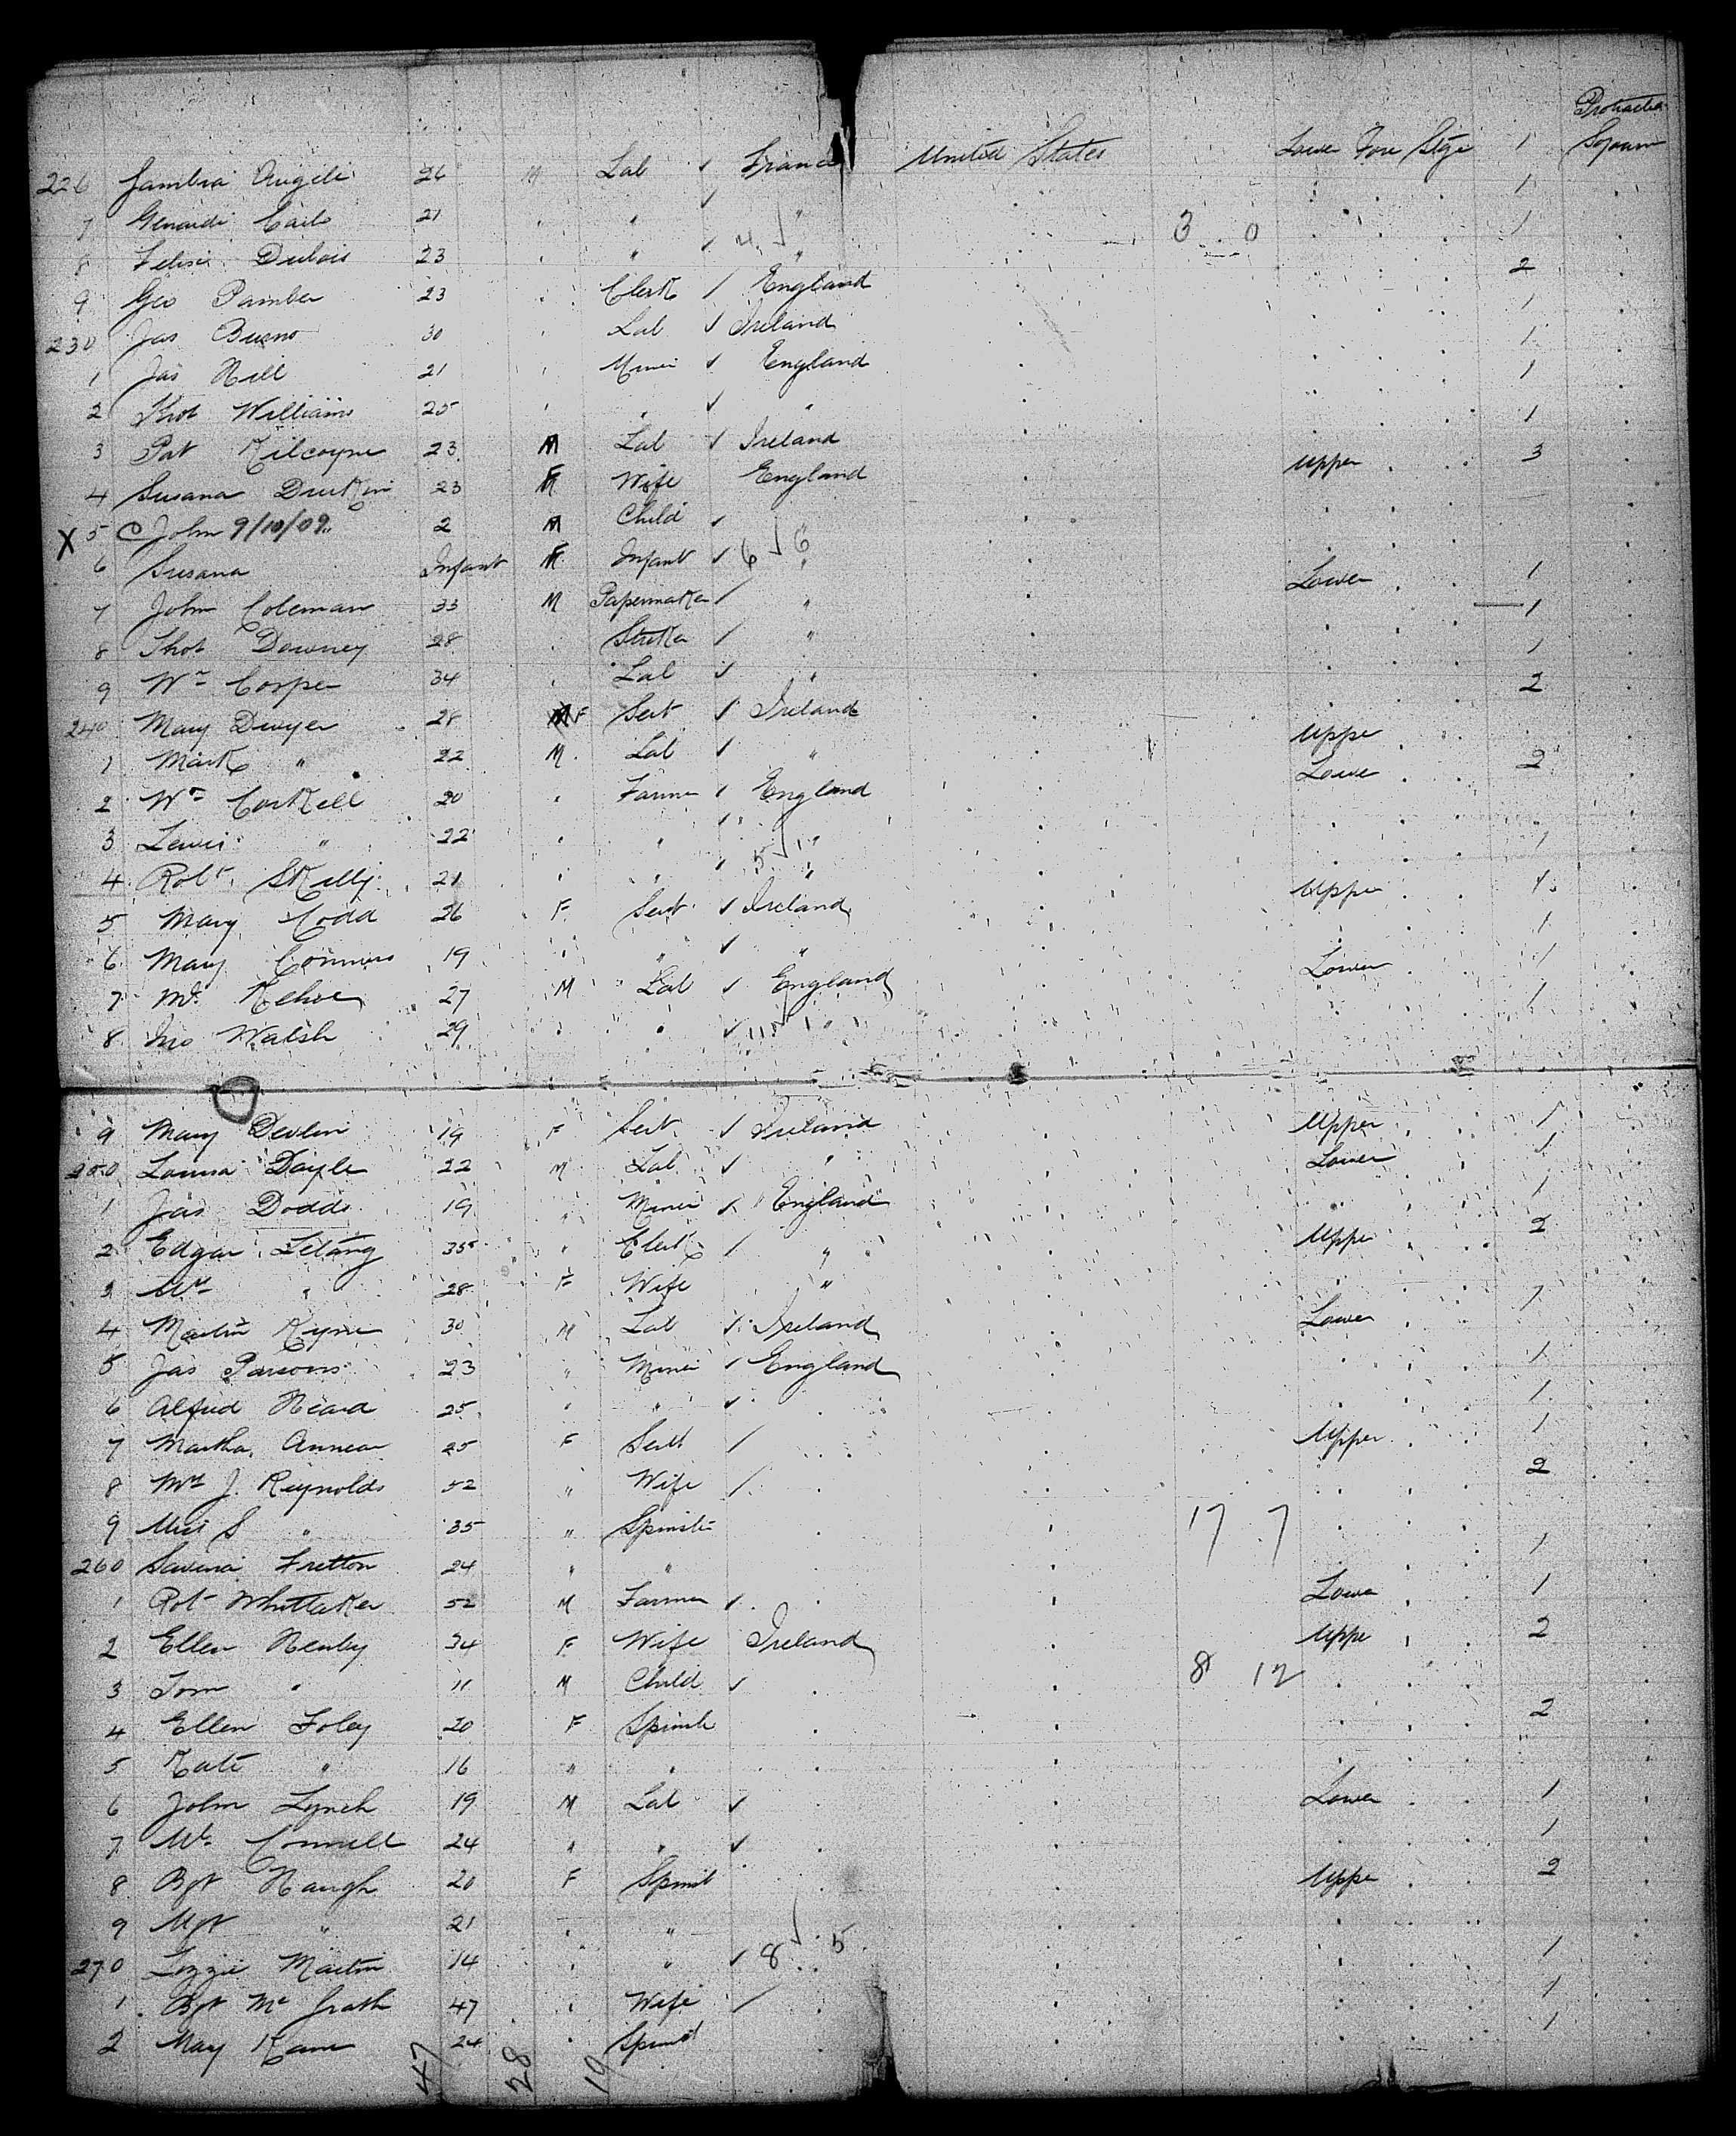 Protracted
226 Angeli 26 M Lab ✓ France United States Lower Fore Stge 1 Sojourn
7 Carlo 21 " " ✓ " 1
8 Dubois 23 " " ✓ " 3 0 1
9 Geo Pamber 23 " Clerk / England 2
230 Jas Burns 30 " Lab ✓ Ireland 1
1 Jas Hill 21 " Miner ✓ England 1
2 Thos Williams 25 " " ✓ " 1
3 Pat Kilcoyne 23 M Lab ✓ Ireland 1
4 Susana Durkin 23 F Wife England Upper 3
X 5 C John 9/10/09 2 M Child ✓ "
6 Susana Infant F Infant ✓ 6 ✓ 6
7 John Coleman 33 M Papermaker / " Lower 1
8 Thos Downey 28 " Striker / " 1
9 Wm Cooper 34 " Lab ✓ " 1
240 Mary Dwyer 28 F Sert ✓ Ireland Upper 2
1 Mark " 22 M Lab ✓ " Lower
2 Wm Corkell 20 " Farmer ✓ England 2
3 Lewis " 22 " " ✓ "
4 Robt Skelly 21 " " ✓ 5 ✓ " 1
5 Mary Codd 26 F Sert ✓ Ireland Upper 1
6 Mary Connors 19 " " ✓ " 1
7 Kehoe 27 M Lab ✓ England Lower 1
8 Jno Walsh 29 " " ✓ " 1
9 Mary Devlin 19 F Sert ✓ Ireland Upper 1
250 Doyle 22 M Lab ✓ " Lower 1
1 Jas Dodds 19 " Miner ✓ England 1
2 Edgar Letang 35 " Clerk / " Upper 2
3 Mrs " 28 F Wife "
4 Martin Ryan 30 M Lab ✓ Ireland Lower 1
5 Jas Parsons 23 " Miner ✓ England 1
6 Alfred Heard 25 " " ✓ 1
7 Martha Annear 25 F Sert / Upper 1
8 Mrs J. Reynolds 52 " Wife / 2
9 Miss S " 35 " Spinster 17 7
260 Fretton 24 " " 1
1 Robt Whittaker 52 M Farmer ✓ Lower 1
2 Ellen Henby 34 F Wife Ireland Upper 2
3 Tom " 11 M Child ✓ 8 12
4 Ellen Foley 20 F Spinster 2
5 Kate " 16 " "
6 John Lynch 19 M Lab ✓ Lower 1
7 Connell 24 " " ✓ 1
8 Bgt Haugh 20 F Spinst Upper 2
9 Mgt " 21 " "
270 Lizzie Martin 14 " " ✓ 8 ✓ 5 1
1 Bgt Mc Grath 47 " Wife / 1
2 May Kane 24 " Spinst 1
47 28 19